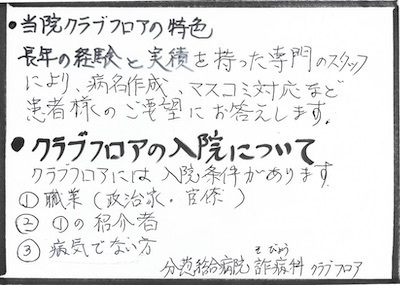 ●当院クラブフロアの特色
長年の経験と実績を持った専門のスタッフ
により、病名作成、マスコミ対応など
患者様のご要望にお答えします。
●クラブフロアの入院について
クラブフロアには入院条件があります
①職業(政治家・官僚)
②①の紹介者
③病気でない方
総合病院 詐病科 クラブフロア
さびょう